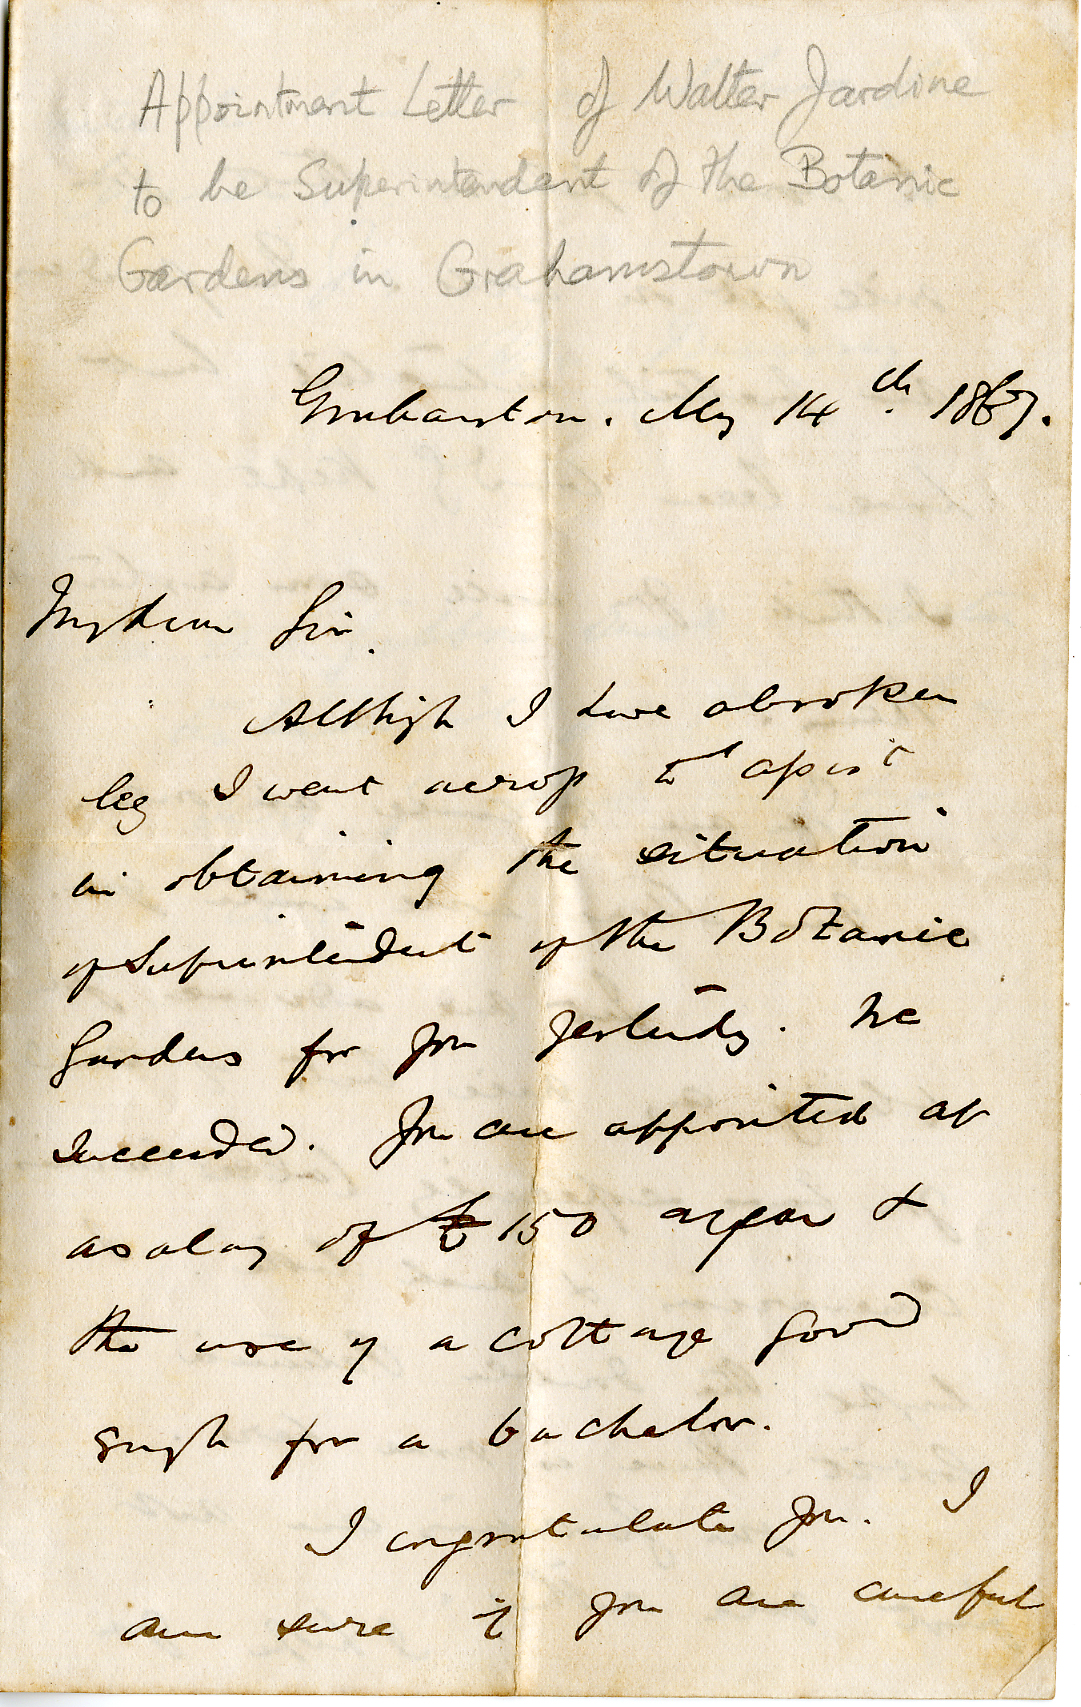 Appointment Letter of Walter Jardine
to be Superintendent of the Botanic
Gardens in Grahamstown
Grahamstown. May 14th 1867.
My dear Sir.
Although I have a broken
leg I went across to assist
in obtaining the situation
of Superintendent of the Botanic
Gardens for you yesterday. We
succeeded. You are appointed at
a salary of £150 a year &
the use of a cottage good
enough for a bachelor.
I congratulate you. I
am sure if you are careful